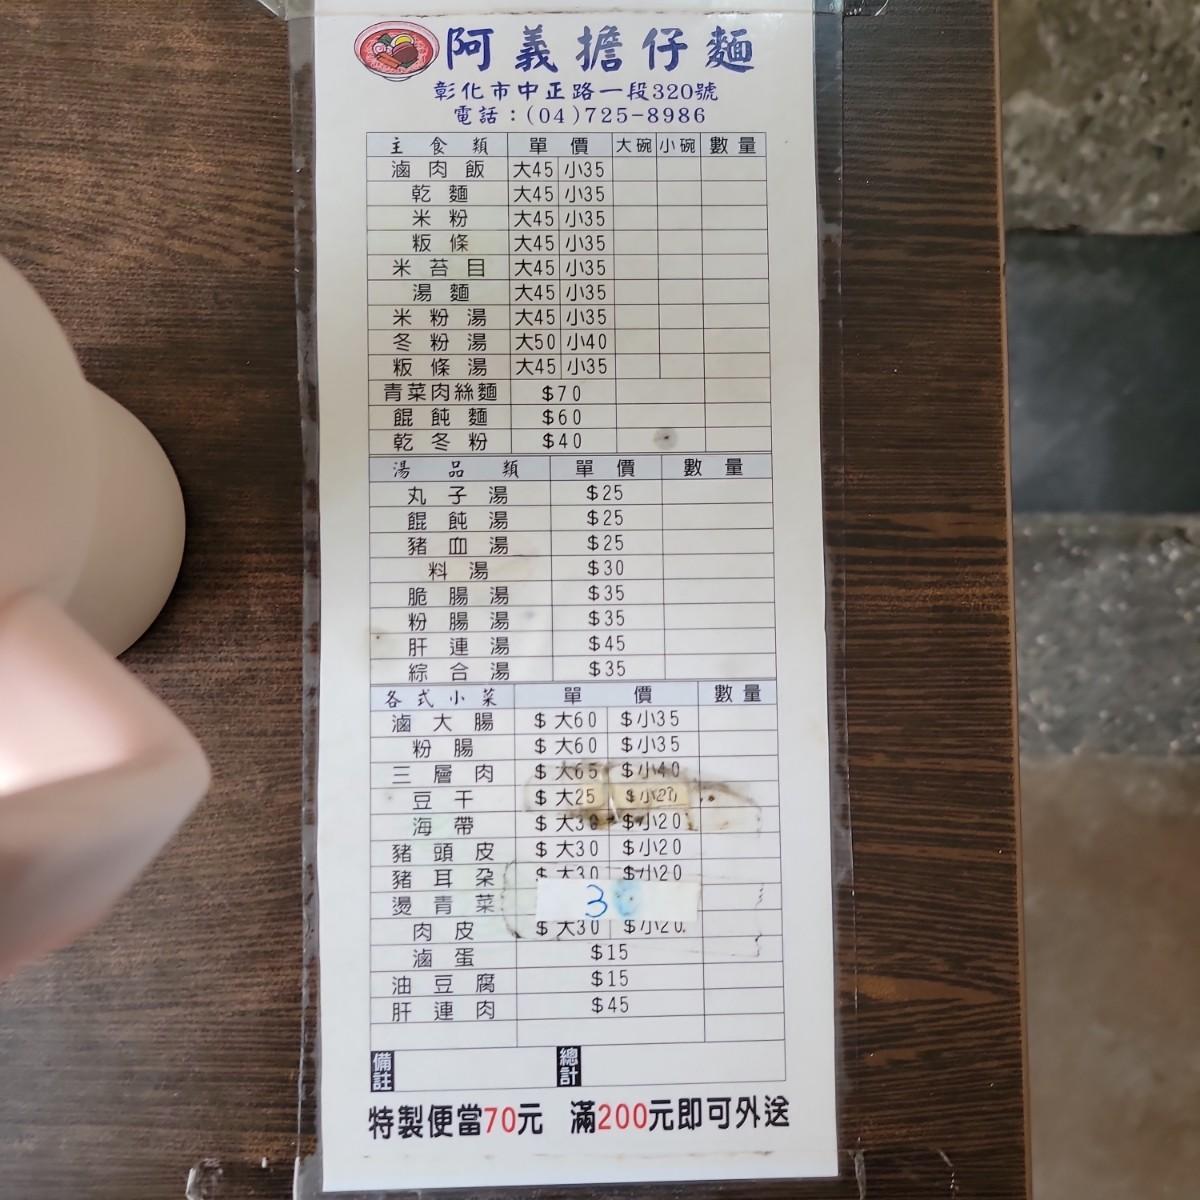 阿義擔仔麵
彰化市中正路一段320號
電話：(04)725-8986
主食類 單價 大碗 小碗 數量
滷肉飯 大45 小35
乾麵 大45 小35
米粉 大45 小35
粄條 大45 小35
米苔目 大45 小35
湯麵 大45 小35
米粉湯 大45 小35
冬粉湯 大50 小40
粄條湯 大45 小35
青菜肉絲麵 $70
餛飩麵 $60
乾冬粉 $40
湯品類 單價 數量
丸子湯 $25
餛飩湯 $25
豬血湯 $25
料湯 $30
脆腸湯 $35
粉腸湯 $35
肝連湯 $45
綜合湯 $35
各式小菜 單價 數量
滷大腸 $大60 $小35
粉腸 $大60 $小35
三層肉 $大65 $小40
豆干 $大25 $小20
海帶 $大30 $小20
豬頭皮 $大30 $小20
豬耳朵 $大30 $小20
燙青菜 30
肉皮 $大30 $小20
滷蛋 $15
油豆腐 $15
肝連肉 $45
備註 總計
特製便當70元 滿200元即可外送